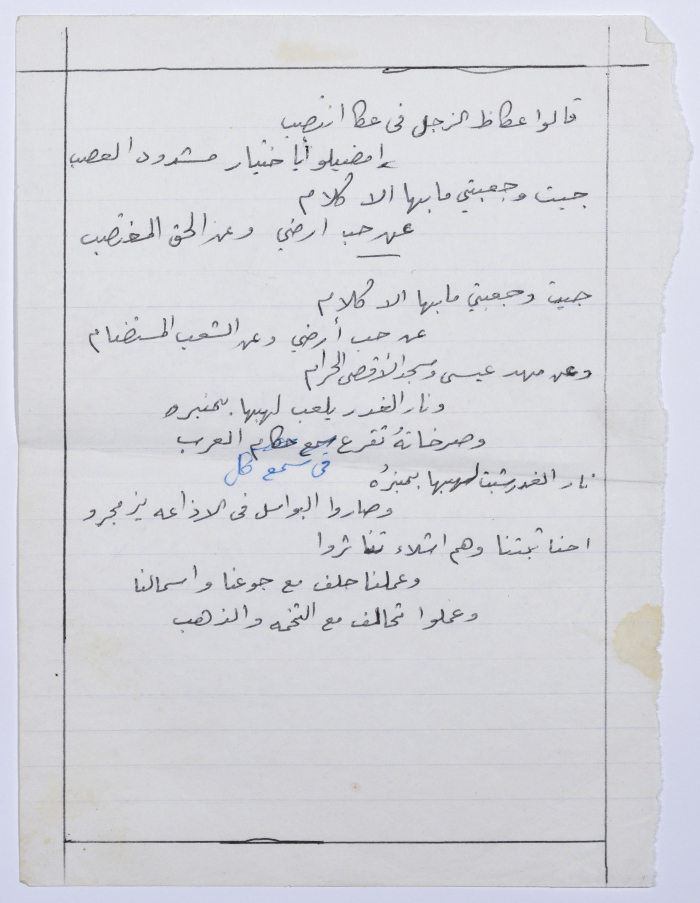 قالوا عكاظ الزجل في عكا انتصب
إمضيلو أيا ختيار مشدود العصب
جيت وجعبتي مابها الا كلام
عن حب ارضي وعن الحق المغتصب
جيت وجعبتي مابها الا كلام
عن حب أرضي وعن الشعب المستضام
وعن مهد عيسى ومسجد الأقصى الحرام
ونار الغدر يلعب لهيبها بمنبره
وصرخاتهُ تقرع سمع حكام العرب
في سمع كل
نار الغدر شبت لهيبها بمنبرُه
وصاروا البواسل في الاذاعه يزمجرو
احنا ثبتنا وهم اشلاء تناثروا
وعملنا حلف مع جوعنا واسمالنا
وعملوا تحالف مع التخمه والذهب